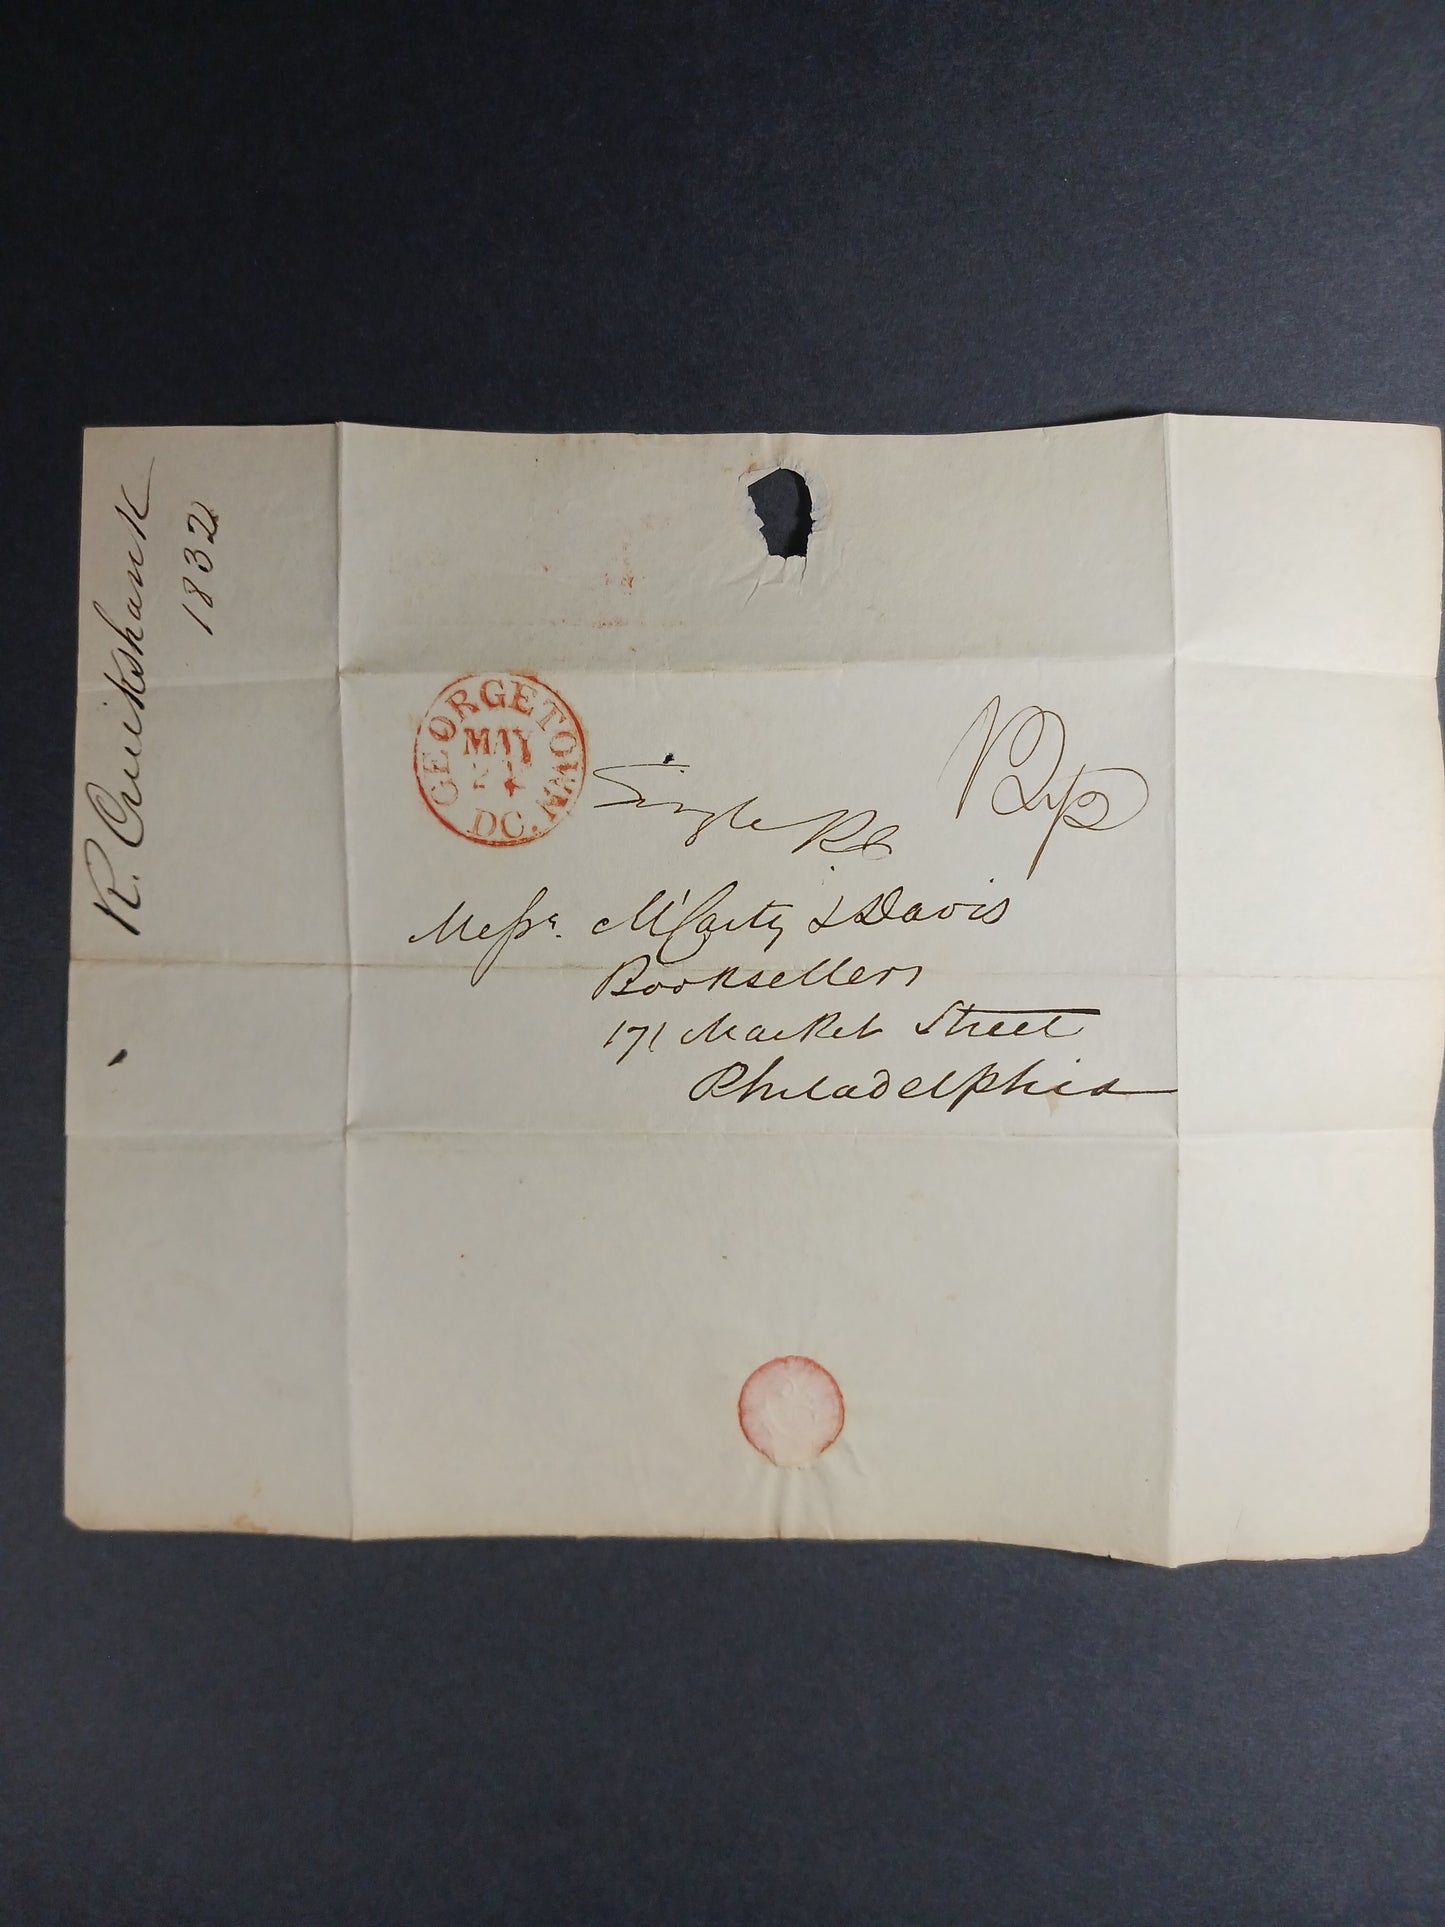 R. Cruikshank
1832
GEORGETOWN
MAY
DC.
Single
Messrs. M'Carty & Davis
Booksellers
171 Market Street
Philadelphia